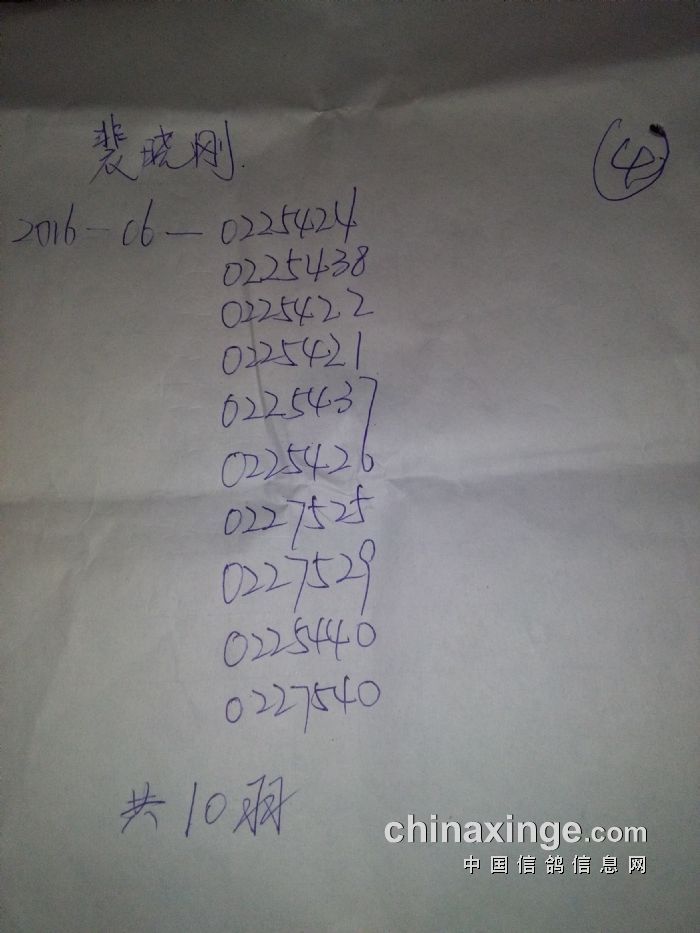 裴晓刚
④
2016-06-0225424
0225438
0225422
0225421
0225437
0225426
0227525
0227529
0225440
0227540
共10羽
chinaxinge.com
中国信鸽信息网